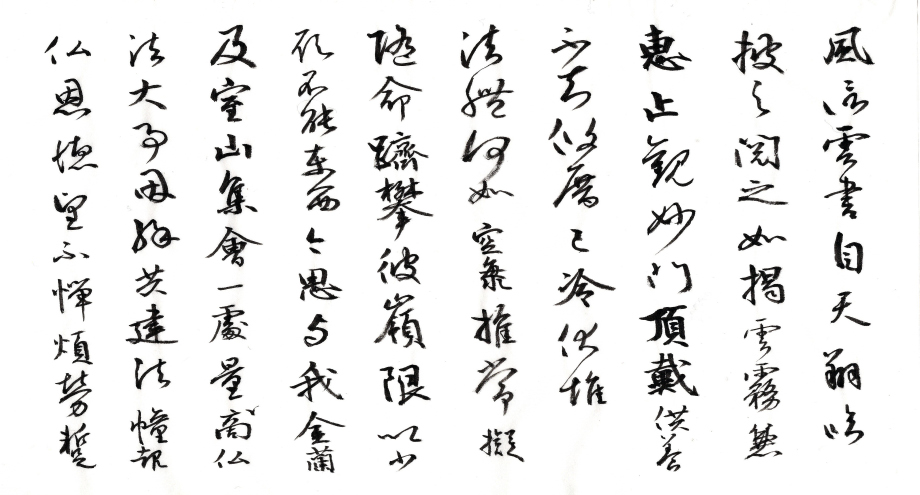 風信雲書自天翔臨
披之閱之如揭雲霧兼
惠止觀妙門頂戴供養
不知攸厝已冷伏惟
法體何如空海推常擬
隨命躋攀彼嶺限以少
願不能東西今思与我金蘭
及室山集會一處量商仏
法大事因緣共建法幢報
仏恩德望不憚煩勞蹔